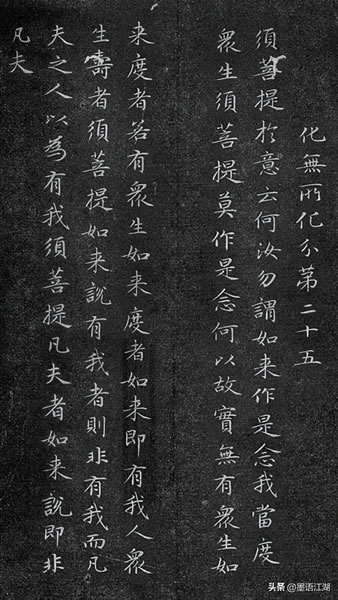 化無所化分第二十五
須菩提於意云何汝勿謂如来作是念我當度
衆生須菩提莫作是念何以故實無有衆生如
来度者若有衆生如来度者如来即有我人衆
生壽者須菩提如来説有我者則非有我而凡
夫之人以為有我須菩提凡夫者如来説即非
凡夫
头条 @墨语江湖